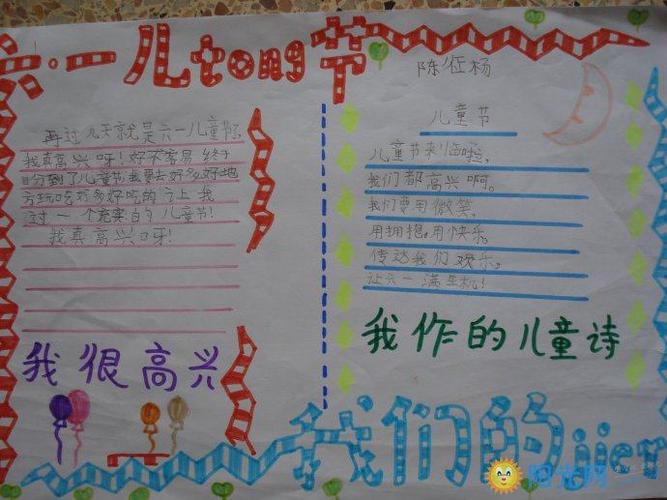 六·一儿tong节
陈征杨
再过几天就是六一儿童节了
我真高兴呀！好不容易终于
盼到了儿童节我要去好多好地
方玩吃好多好吃的让我
过一个充实的儿童节！
我真高兴呀！
我很高兴
儿童节
儿童节来临啦，
我们都高兴啊。
我们要用微笑，
用拥抱，用快乐。
传达我们欢乐。
让六一满生机！
我作的儿童诗
我们的jier
阳光网